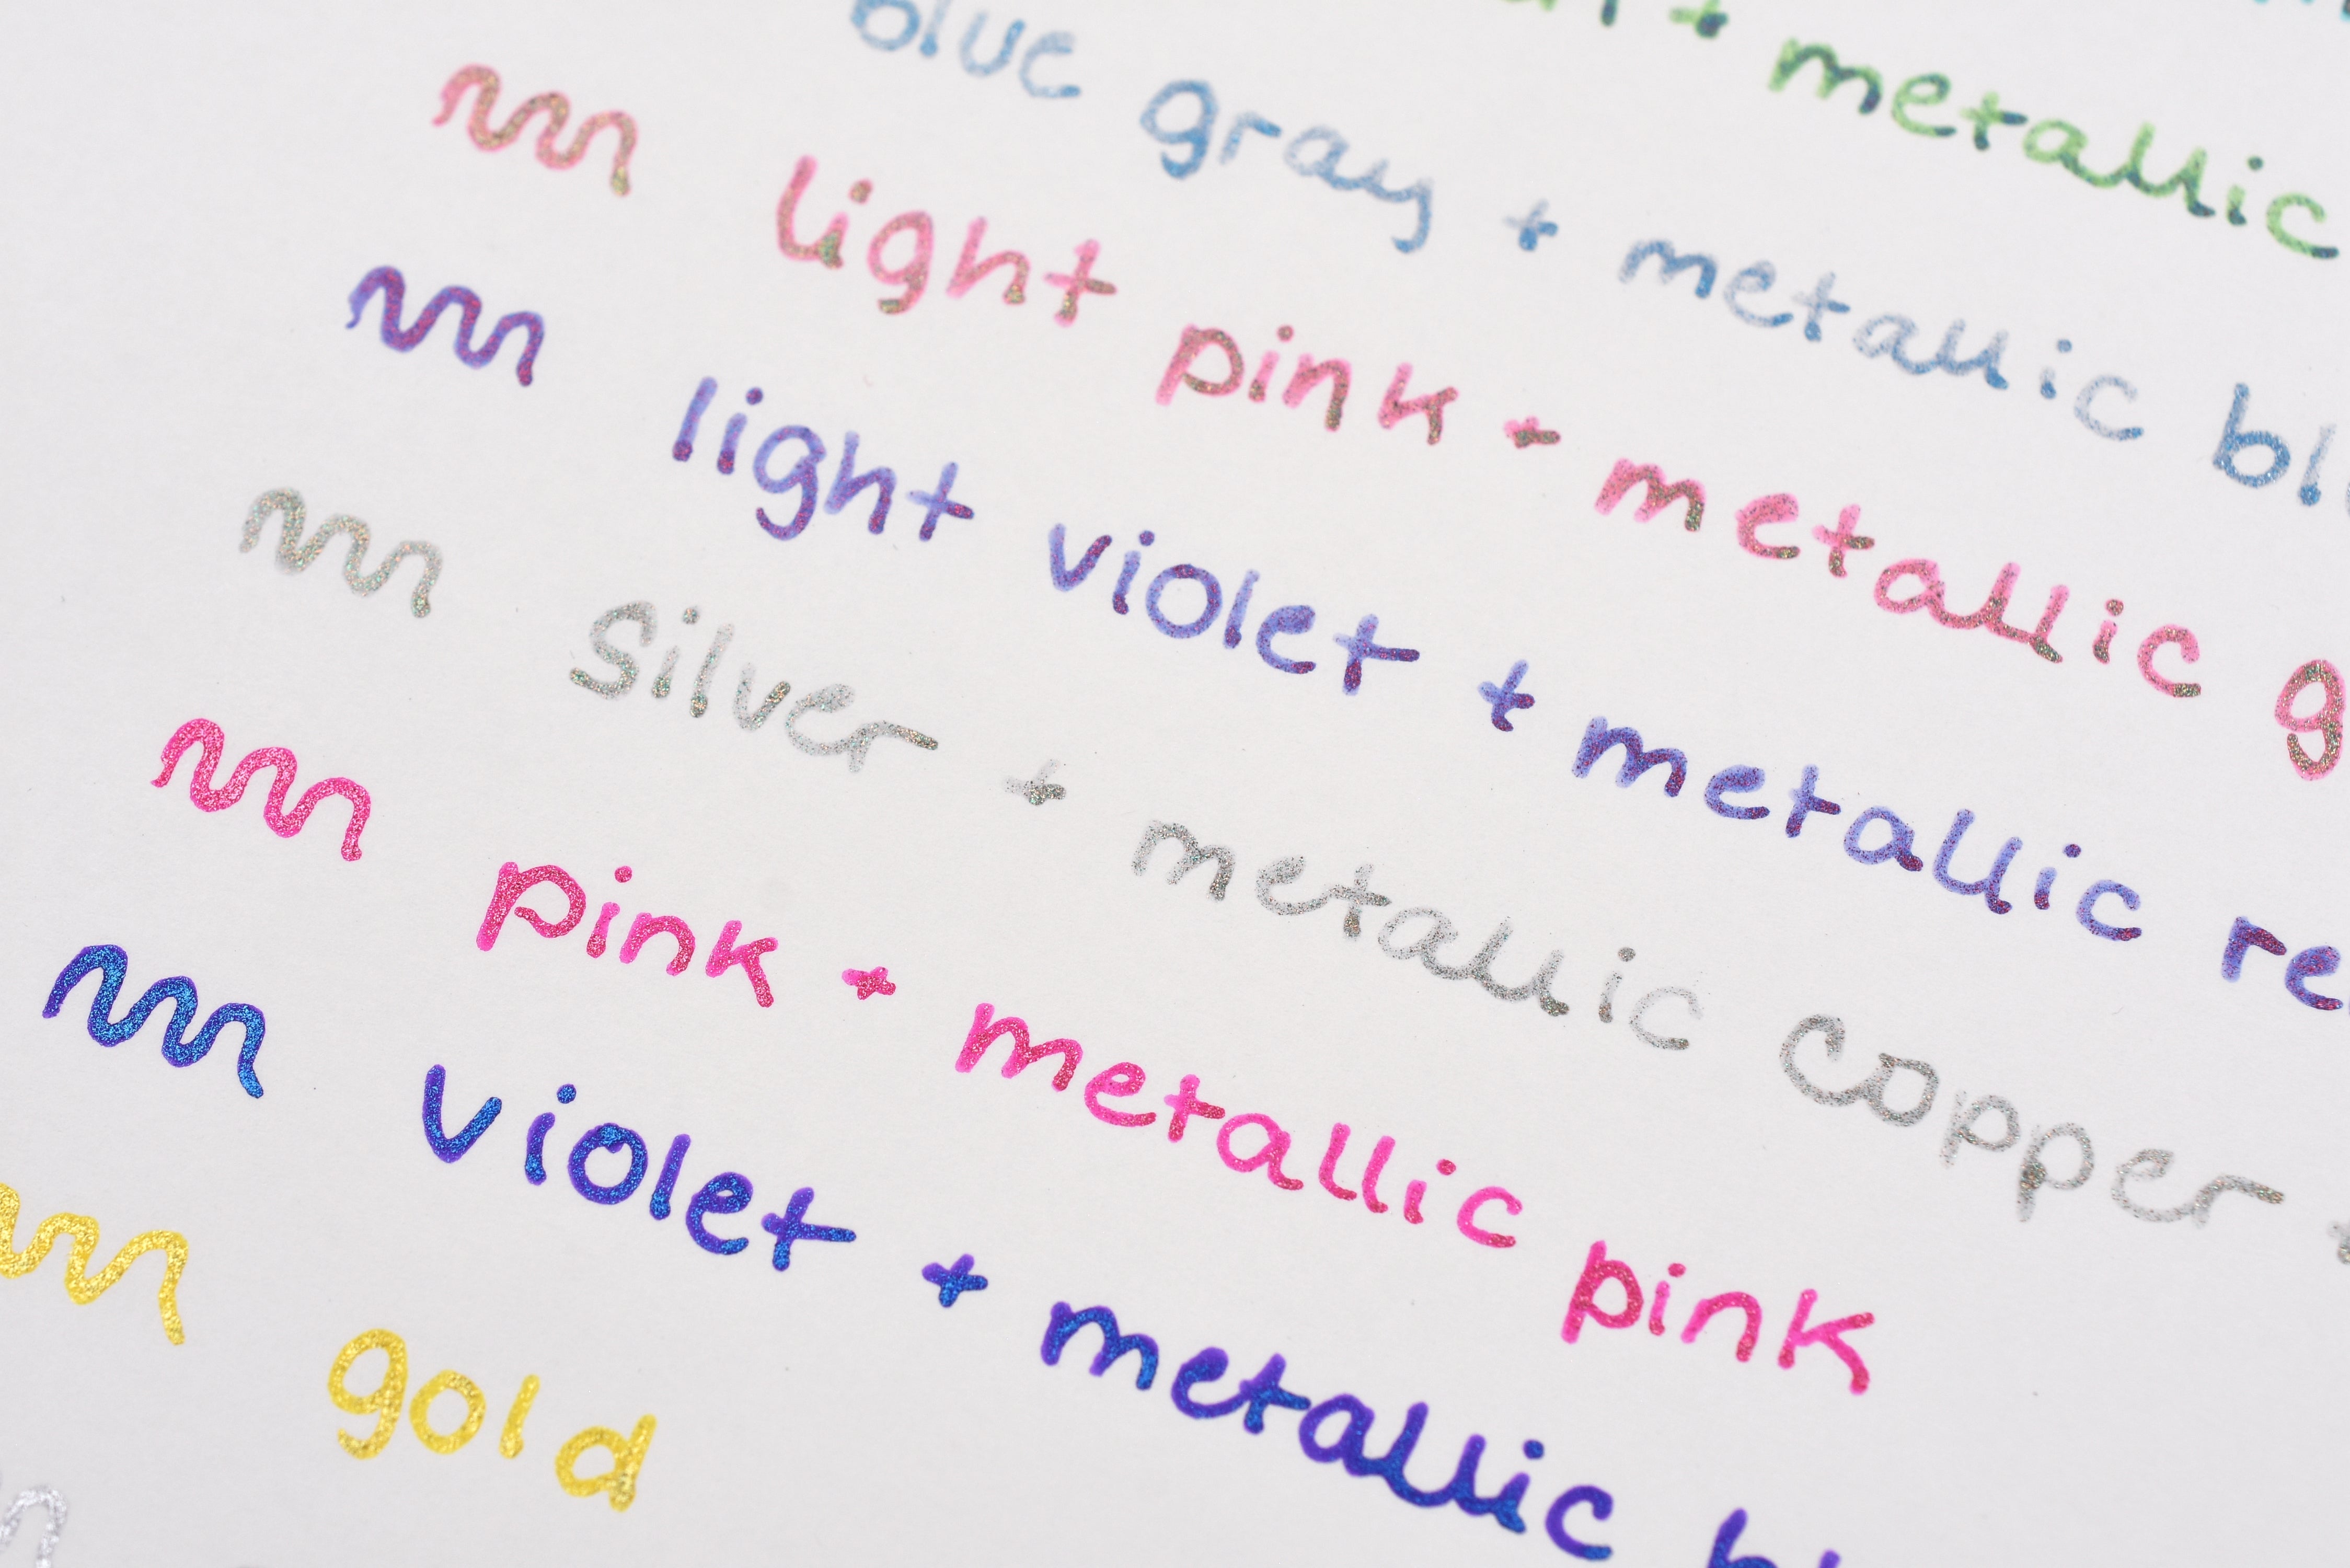 + metallic
blue gray + metallic bl
light pink + metallic g
light violet + metallic re
Silver + metallic copper +
pink + metallic pink
violet + metallic bl
gold